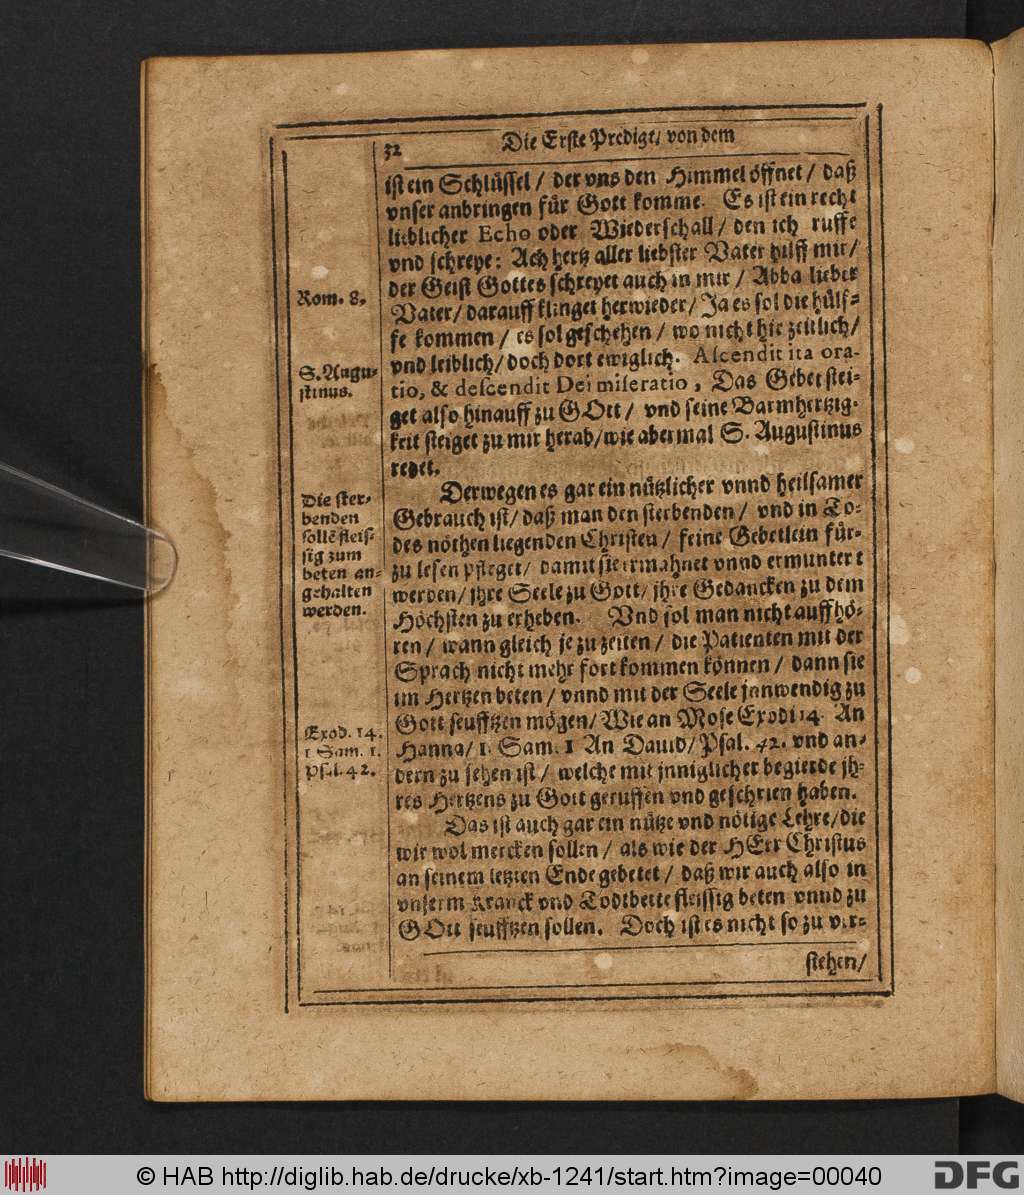 32
Die Erste Predigt/ von dem
ist ein Schlüssel / der vns den Himmel öffnet / daß
vnser anbringen für Gott komme. Es ist ein recht
lieblicher Echo oder Wiederschall / den ich ruffe
vnd schreye: Ach hertz aller liebster Vater hilff mir/
der Geist Gottes schreyet auch in mir / Abba lieber
Rom. 8.
Vater/ darauff klinget herwieder/ Ja es sol die hülf-
fe kommen / es sol geschehen / wo nicht hie zeitlich/
vnd leiblich/ doch dort ewiglich. Ascendit ita ora-
S. Augu-
stinus.
tio, & descendit Dei miseratio, Das Gebet stei-
get also hinauff zu GOtt / vnd seine Barmhertzig-
keit steiget zu mir herab/wie abermal S. Augustinus
redet.
Derwegen es gar ein nützlicher vnnd heilsamer
Die ster-
benden
sollē fleis-
sig zum
beten an-
gehalten
werden.
Gebrauch ist/ daß man den sterbenden / vnd in To-
des nöthen liegenden Christen / feine Gebetlein für-
zu lesen pfleget/ damit sie ermahnet vnnd ermuntert
werden/ jhre Seele zu Gott/ jhre Gedancken zu dem
Höchsten zu erheben. Vnd sol man nicht auffhö-
ren / wann gleich je zu zeiten / die Patienten mit der
Sprach nicht mehr fort kommen können / dann sie
im Hertzen beten / vnnd mit der Seele jnnwendig zu
Gott seufftzen mögen/ Wie an Mose Exodi 14. An
Exod. 14.
1 Sam. 1.
Psal. 42.
Hanna/ 1. Sam. 1 An Dauid/ Psal. 42. vnd an-
dern zu sehen ist / welche mit jnniglicher begierde jh-
res Hertzens zu Gott geruffen vnd geschrien haben.
Das ist auch gar ein nütze vnd nötige Lehre/die
wir wol mercken sollen / als wie der HErr Christus
an seinem letzten Ende gebetet / daß wir auch also in
vnserm Kranck vnd Todtbette fleissig beten vnnd zu
GOtt seufftzen sollen. Doch ist es nicht so zu ver-
stehen/
© HAB http://diglib.hab.de/drucke/xb-1241/start.htm?image=00040
DFG